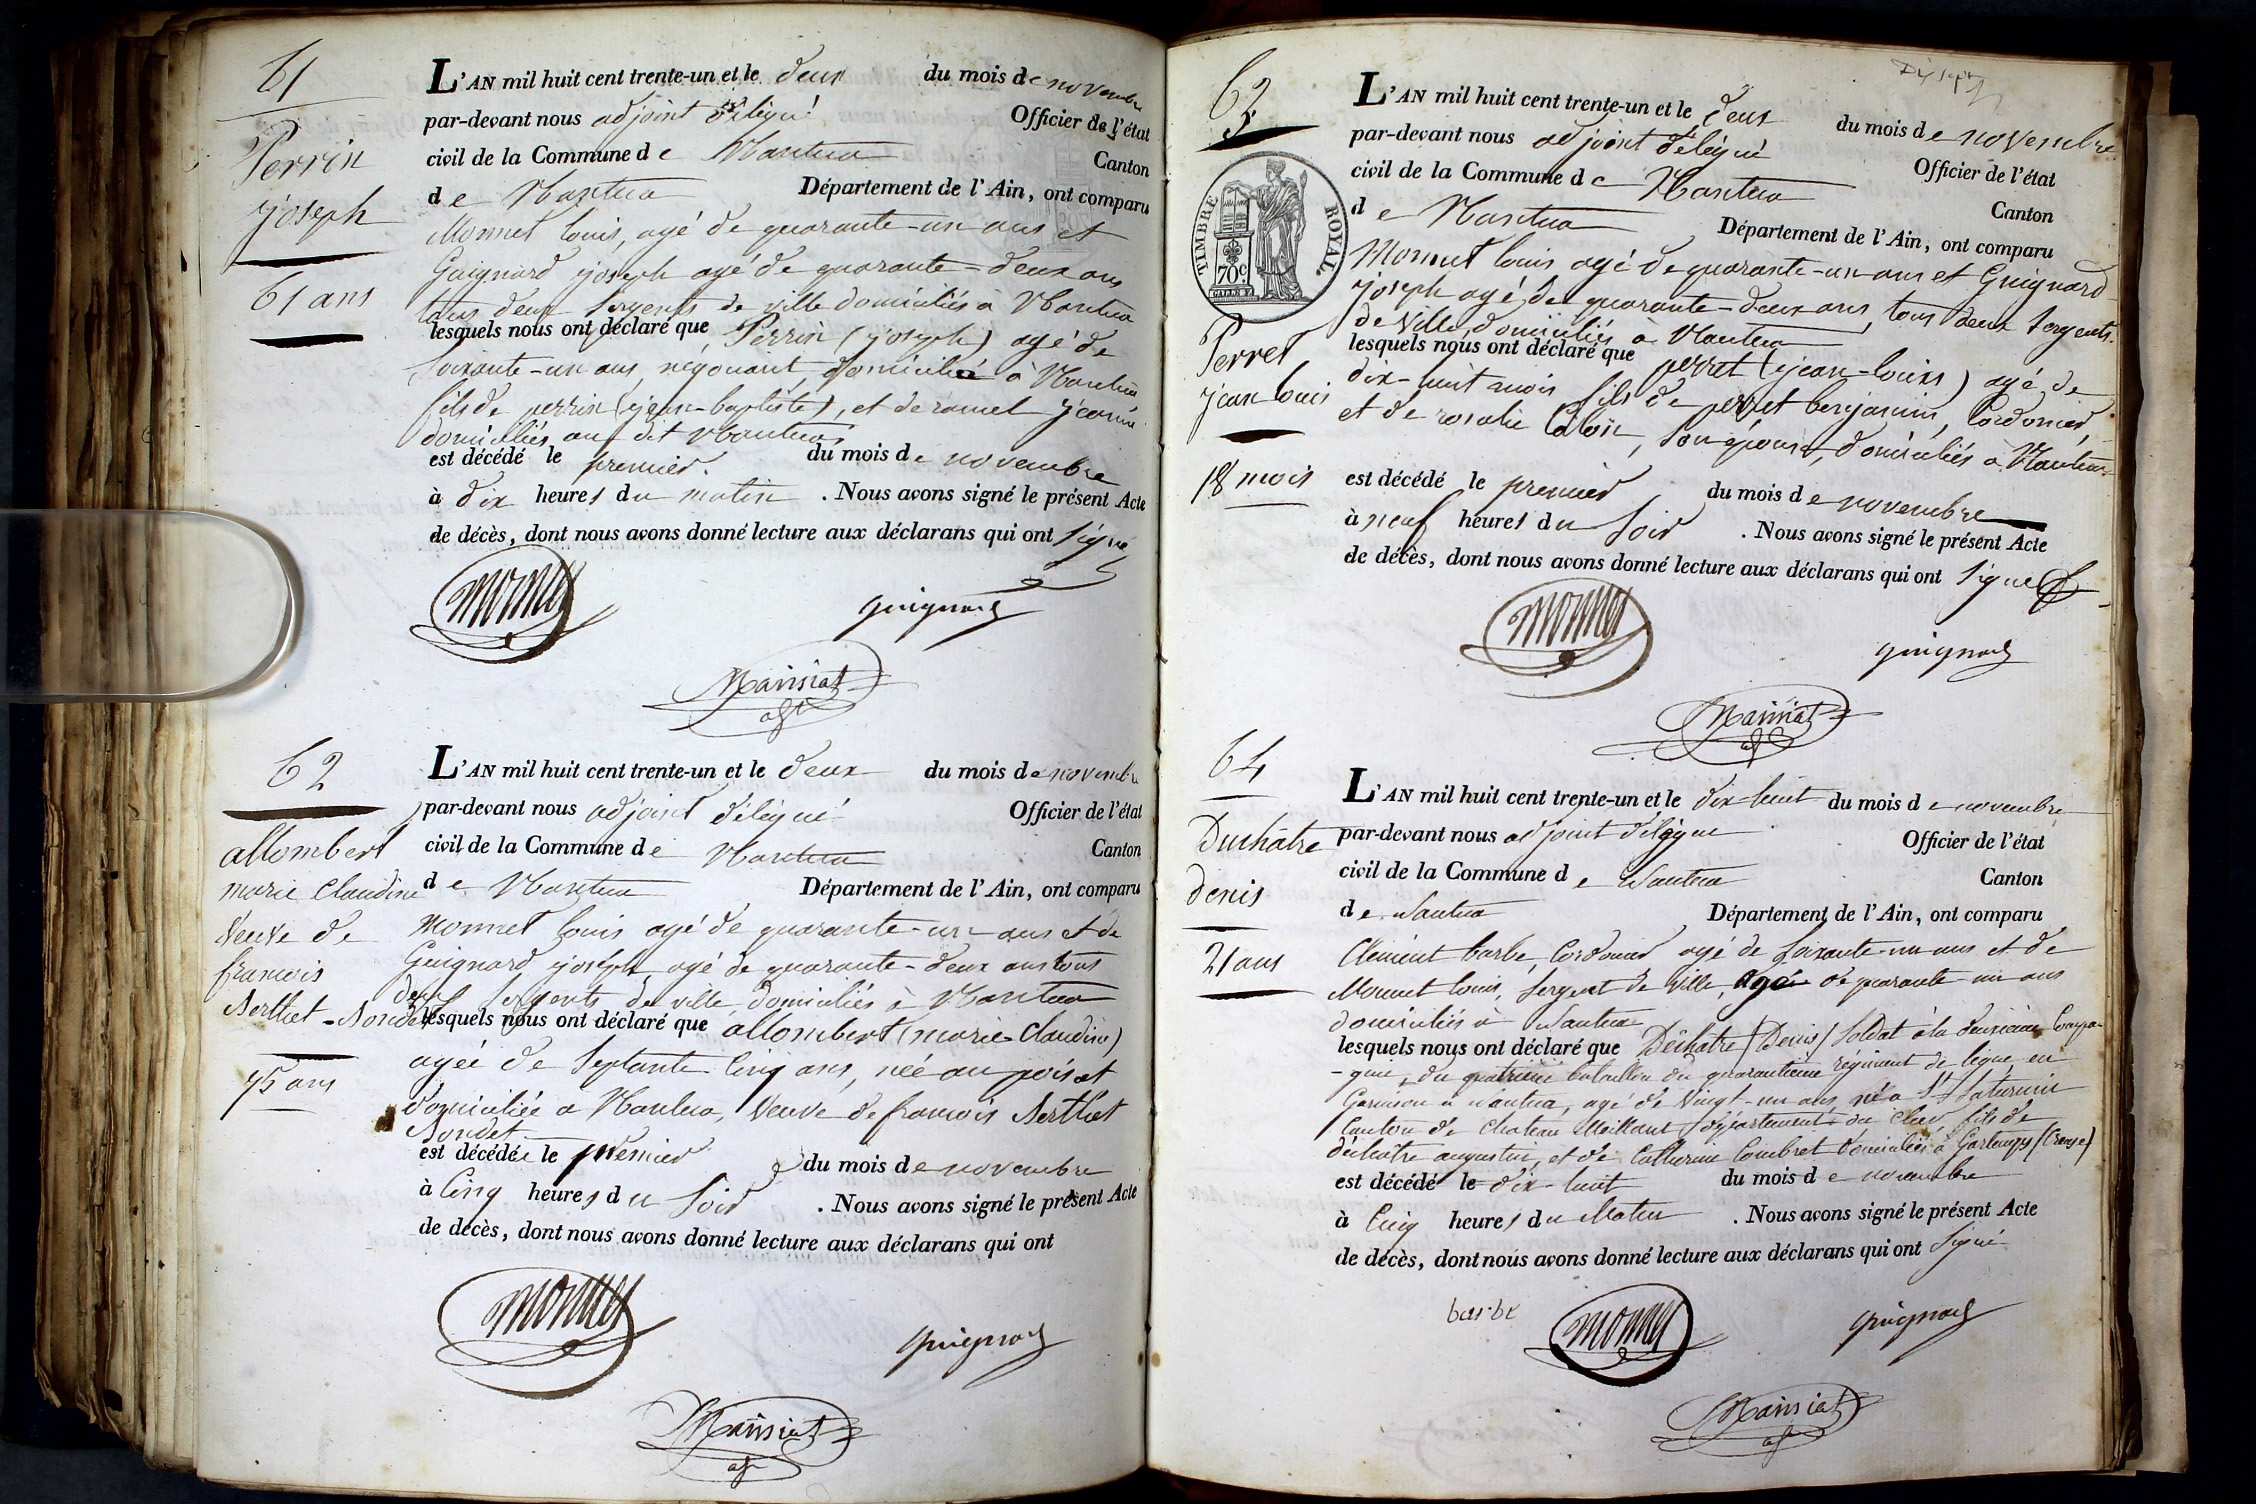 61
Perrin
joseph
61 ans
L'AN mil huit cent trente-un et le deux du mois de novembre
par-devant nous adjoint délégué Officier de l'état
civil de la Commune de Nantua Canton
de Nantua Département de l'Ain, ont comparu
Monnet louis, agé de quarante-un ans et
Guignard joseph agé de quarante-deux ans
tous deux sergents de ville domiciliés à Nantua
lesquels nous ont déclaré que Perrin (joseph) agé de
soixante-un ans, négociant, domicilié à Nantua
fils de perrin (jean-baptiste), et de ramel jeanne
domiciliés au dit Nantua
est décédé le premier du mois de novembre
à dix heures du matin. Nous avons signé le présent Acte
de décès, dont nous avons donné lecture aux déclarans qui ont signé
monnet
guignard
Mainiat
adj
62
allombert
marie Claudine
Veuve de
francois
Berthet-Bondet
75 ans
L'AN mil huit cent trente-un et le deux du mois de novembre
par-devant nous adjoint délégué Officier de l'état
civil de la Commune de Nantua Canton
de Nantua Département de l'Ain, ont comparu
Monnet louis agé de quarante-un ans et de
Guignard joseph agé de quarante-deux ans tous
deux sergents de ville, domiciliés à Nantua
lesquels nous ont déclaré que allombert (marie Claudine)
agée de septante cinq ans, née au poisat
domiciliée a Nantua, Veuve de francois Berthet
Bondet
est décédée le premier du mois de novembre
à Cinq heures du soir. Nous avons signé le présent Acte
de décès, dont nous avons donné lecture aux déclarans qui ont
monnet
guignard
adj
63
TIMBRE ROYAL
70c
Perret
jean louis
18 mois
L'AN mil huit cent trente-un et le deux du mois de novembre
par-devant nous adjoint délégué Officier de l'état
civil de la Commune de Nantua Canton
de Nantua Département de l'Ain, ont comparu
Monnet louis agé de quarante-un ans et Guignard
joseph agé de quarante-deux ans, tous deux sergents
de Ville, domiciliés à Nantua
lesquels nous ont déclaré que perret (jean-louis) agé de
dix-huit mois fils de perret benjamin, Cordonnier,
et de rosalie, son épouse, domiciliés à Nantua
est décédé le premier du mois de novembre
à neuf heures du soir. Nous avons signé le présent Acte
de décès, dont nous avons donné lecture aux déclarans qui ont signé
monnet
guignard
64
Duchâtre
denis
21 ans
L'AN mil huit cent trente-un et le dix-huit du mois de novembre
par-devant nous adjoint délégué Officier de l'état
civil de la Commune de Nantua Canton
de Nantua Département de l'Ain, ont comparu
Clément barbe, Cordonnier agé de soixante-un ans et de
Monnet louis, sergent de Ville, agé de quarante un ans
domiciliés à Nantua
lesquels nous ont déclaré que Déchatre (Denis) soldat à la deuxième Compa-
-gnie, du quatrième bataillon du quarantième régiment de ligne, en
Garnison à Nantua, agé de Vingt-un ans, né a St Saturnin
Canton de Chateau Meillant département du Cher, fils de
déchatre augustin, et de Catherine Combret domiciliés à (Creuse)
est décédé le dix-huit du mois de novembre
à Cinq heures du Matin. Nous avons signé le présent Acte
de décès, dont nous avons donné lecture aux déclarans qui ont signé
barbe
monnet
guignard